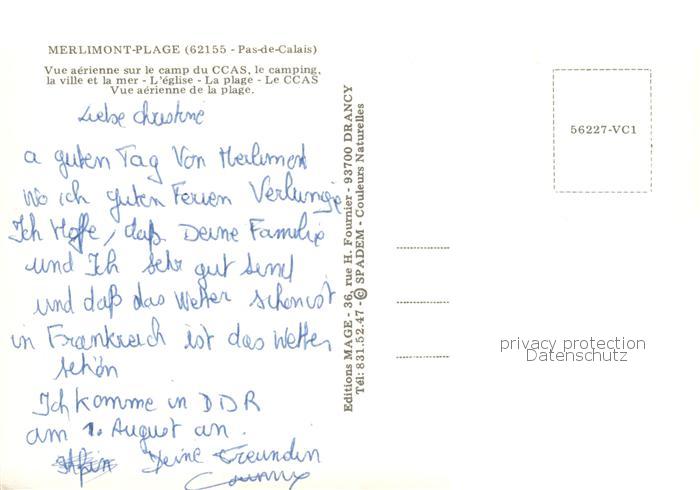 MERLIMONT-PLAGE (62155 - Pas-de-Calais)
Vue aérienne sur le camp du CCAS, le camping,
la ville et la mer - L'église - La plage - Le CCAS
Vue aérienne de la plage.
Liebe Christine
a guten Tag Von Merlimont
wo ich guten Ferien Verbringe
Ich Hoffe, daß Deine Familie
und Ich sehr gut sind
und daß das Wetter schön ist
in Frankreich ist das Wetter
schön
Ich komme in DDR
am 1. August an.
Deine Freundin
Editions MAGE - 36, rue H. Fournier - 93700 DRANCY
Tél: 831.52.47 - © SPADEM - Couleurs Naturelles
56227-VC1
privacy protection
Datenschutz